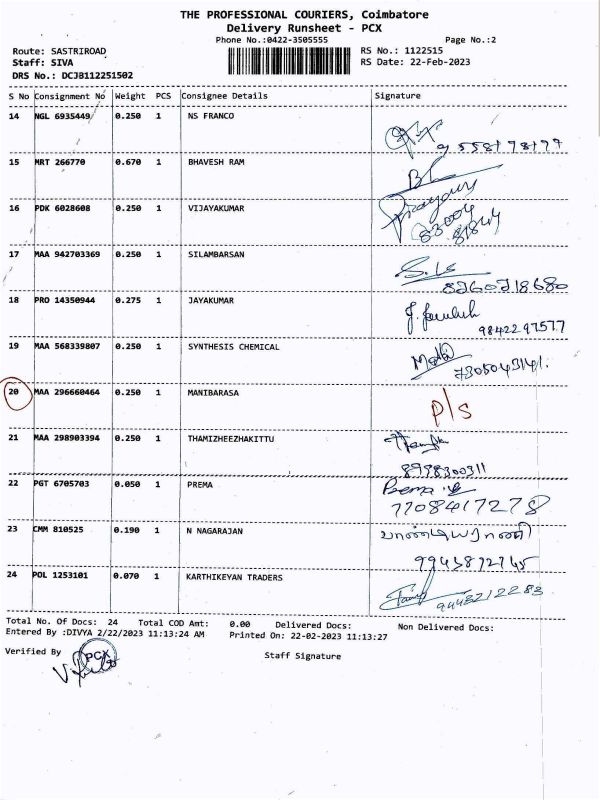 THE PROFESSIONAL COURIERS, Coimbatore
Delivery Runsheet - PCX
Phone No.:0422-3505555 Page No.:2
Route: SASTRIROAD RS No.: 1122515
Staff: SIVA RS Date: 22-Feb-2023
DRS No.: DCJB112251502
S No Consignment No Weight PCS Consignee Details Signature
14 NGL 6935449 0.250 1 NS FRANCO
15 MRT 266770 0.670 1 BHAVESH RAM
16 PDK 6028608 0.250 1 VIJAYAKUMAR
83004
81844
17 MAA 942703369 0.250 1 SILAMBARSAN
8760718680
18 PRO 14350944 0.275 1 JAYAKUMAR
9842297577
19 MAA 568339807 0.250 1 SYNTHESIS CHEMICAL
7305043141.
20 MAA 296660464 0.250 1 MANIBARASA P/S
21 MAA 298903394 0.250 1 THAMIZHEEZHAKITTU
8998300311
22 PGT 6705703 0.050 1 PREMA Prema
7708417278
23 CMM 810525 0.190 1 N NAGARAJAN
9943872745
24 POL 1253101 0.070 1 KARTHIKEYAN TRADERS
9443212283
Total No. Of Docs: 24 Total COD Amt: 0.00 Delivered Docs: Non Delivered Docs:
Entered By :DIVYA 2/22/2023 11:13:24 AM Printed On: 22-02-2023 11:13:27
Verified By PCX Staff Signature